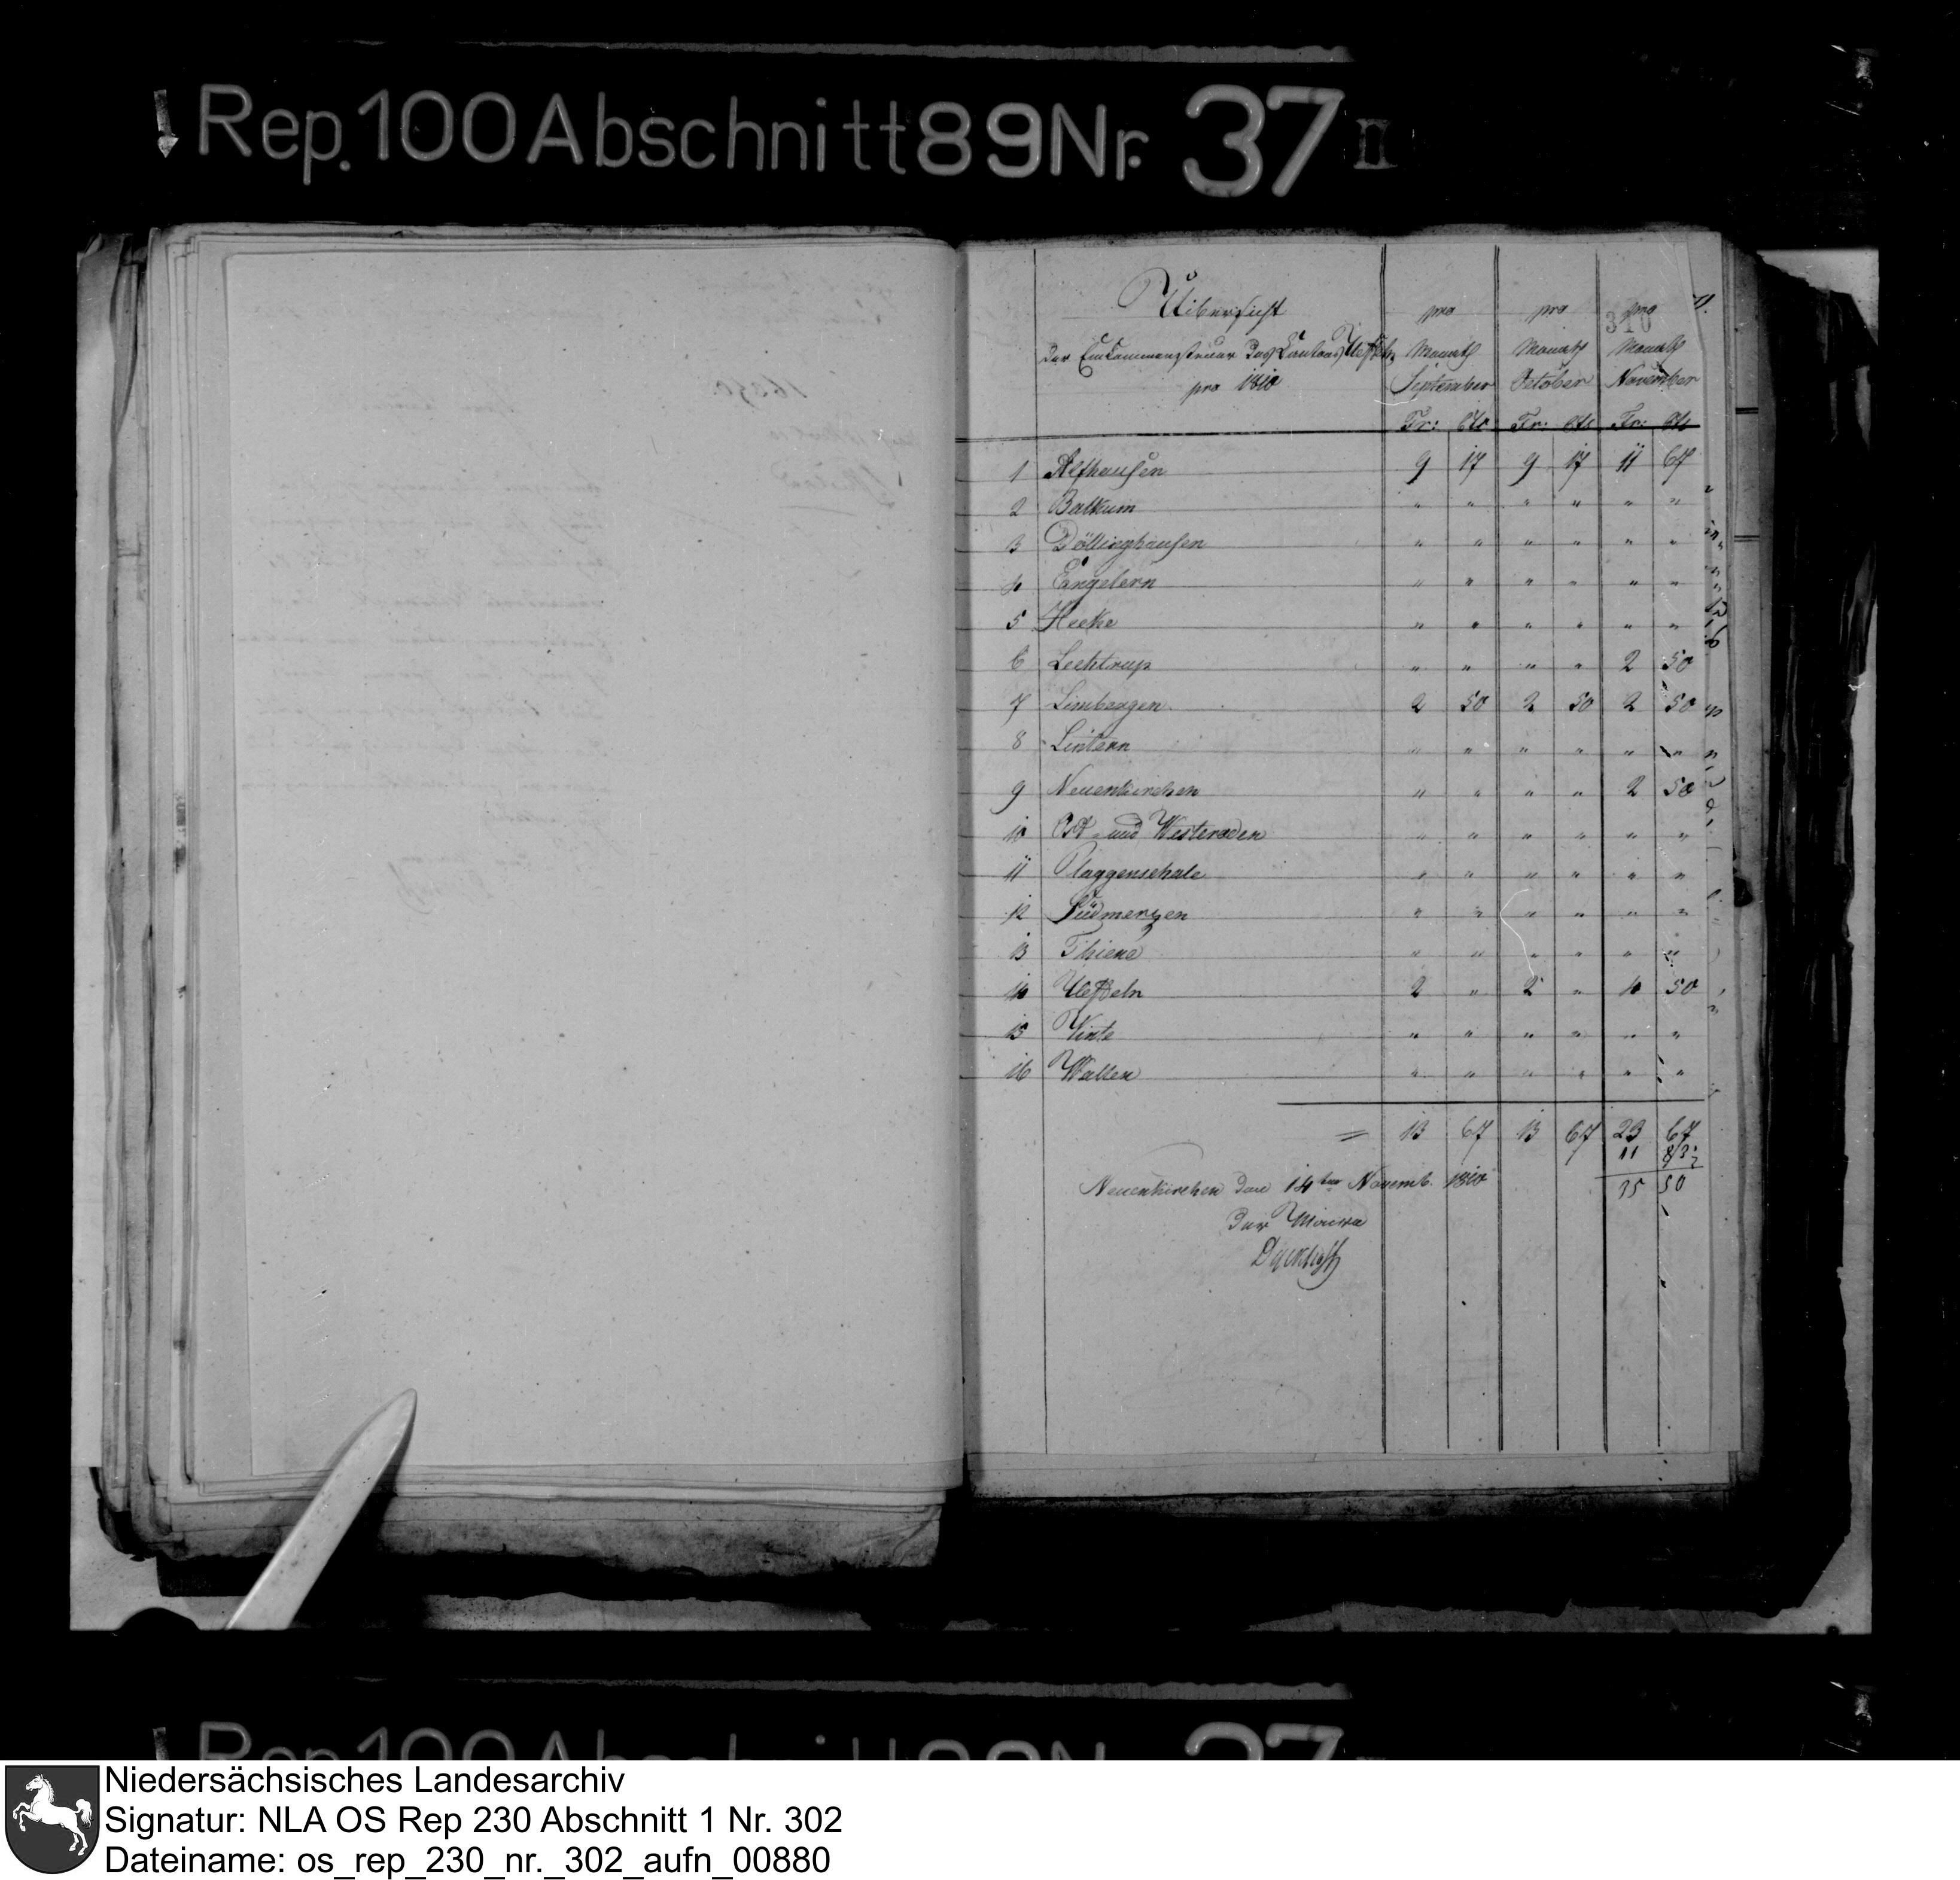 Rep. 100 Abschnitt 89 Nr. 37 II
Uibersicht
der Einkommensteuer des Cantons Ueffeln
pro 1810
pro Monath September Fr: Cts
pro Monath October Fr: Cts
pro Monath November Fr: Cts
310
1 Alfhausen 9 17 9 17 11 67
2 Balkum " " " " " "
3 Döllinghausen " " " " " "
4 Engelern " " " " " "
5 Heeke " " " " " "
6 Lechtrup " " " " 2 50
7 Limbergen 2 50 2 50 2 50
8 Lintern " " " " " "
9 Neuenkirchen " " " " 2 50
10 Ost- und Westeroden " " " " " "
11 Plaggenschale " " " " " "
12 Südmerzen " " " " " "
13 Thiene " " " " " "
14 Ueffeln 2 " 2 " 4 50
15 Vinte " " " " " "
16 Wallen " " " " " "
= 13 67 13 67 23 67
11
35 50
Neuenkirchen den 14ten Novemb. 1810
Der Maire
Rep. 100 Abschnitt 89 Nr. 37
Niedersächsisches Landesarchiv
Signatur: NLA OS Rep 230 Abschnitt 1 Nr. 302
Dateiname: os_rep_230_nr._302_aufn_00880